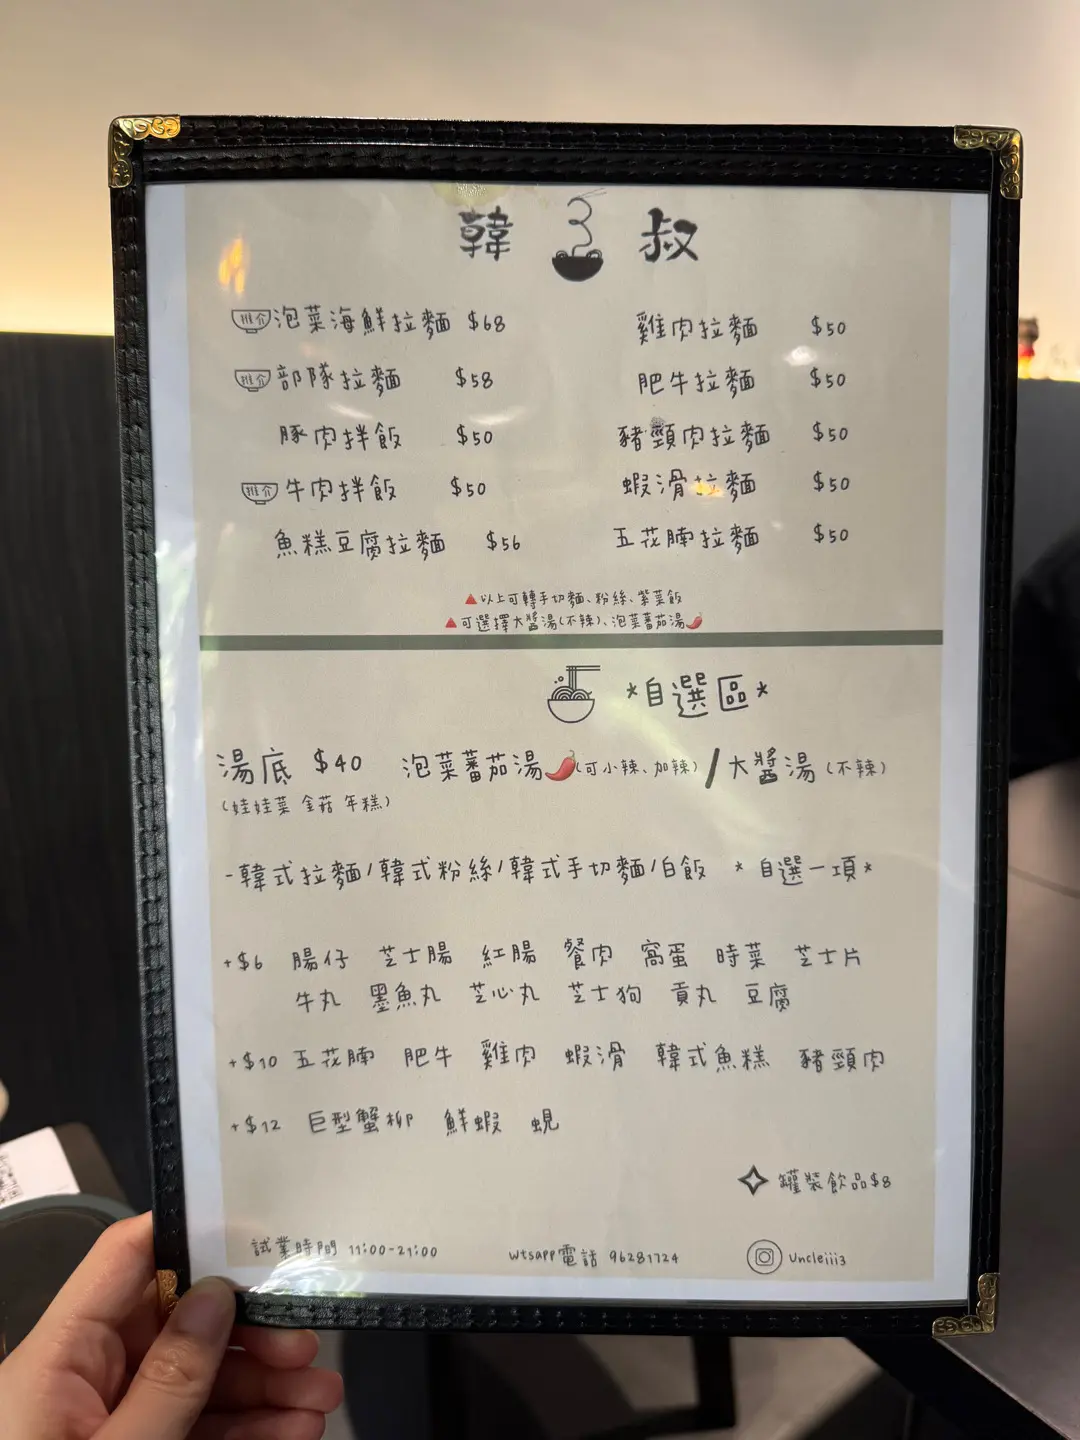 韓 叔
推介 泡菜海鮮拉麵 $68
推介 部隊拉麵 $58
豚肉拌飯 $50
推介 牛肉拌飯 $50
魚糕豆腐拉麵 $56
雞肉拉麵 $50
肥牛拉麵 $50
豬頸肉拉麵 $50
蝦滑拉麵 $50
五花腩拉麵 $50
▲以上可轉手切麵、粉絲、紫菜飯
▲可選擇大醬湯(不辣)、泡菜蕃茄湯🌶
*自選區*
湯底 $40 泡菜蕃茄湯🌶(可小辣、加辣) / 大醬湯(不辣)
(娃娃菜 金菇 年糕)
-韓式拉麵/韓式粉絲/韓式手切麵/白飯 *自選一項*
+$6 腸仔 芝士腸 紅腸 餐肉 窩蛋 時菜 芝士片
牛丸 墨魚丸 芝心丸 芝士狗 貢丸 豆腐
+$10 五花腩 肥牛 雞肉 蝦滑 韓式魚糕 豬頸肉
+$12 巨型蟹柳 鮮蝦 蜆
罐裝飲品$8
試業時間 11:00-21:00 wtsapp電話 96281724 Uncleiii3